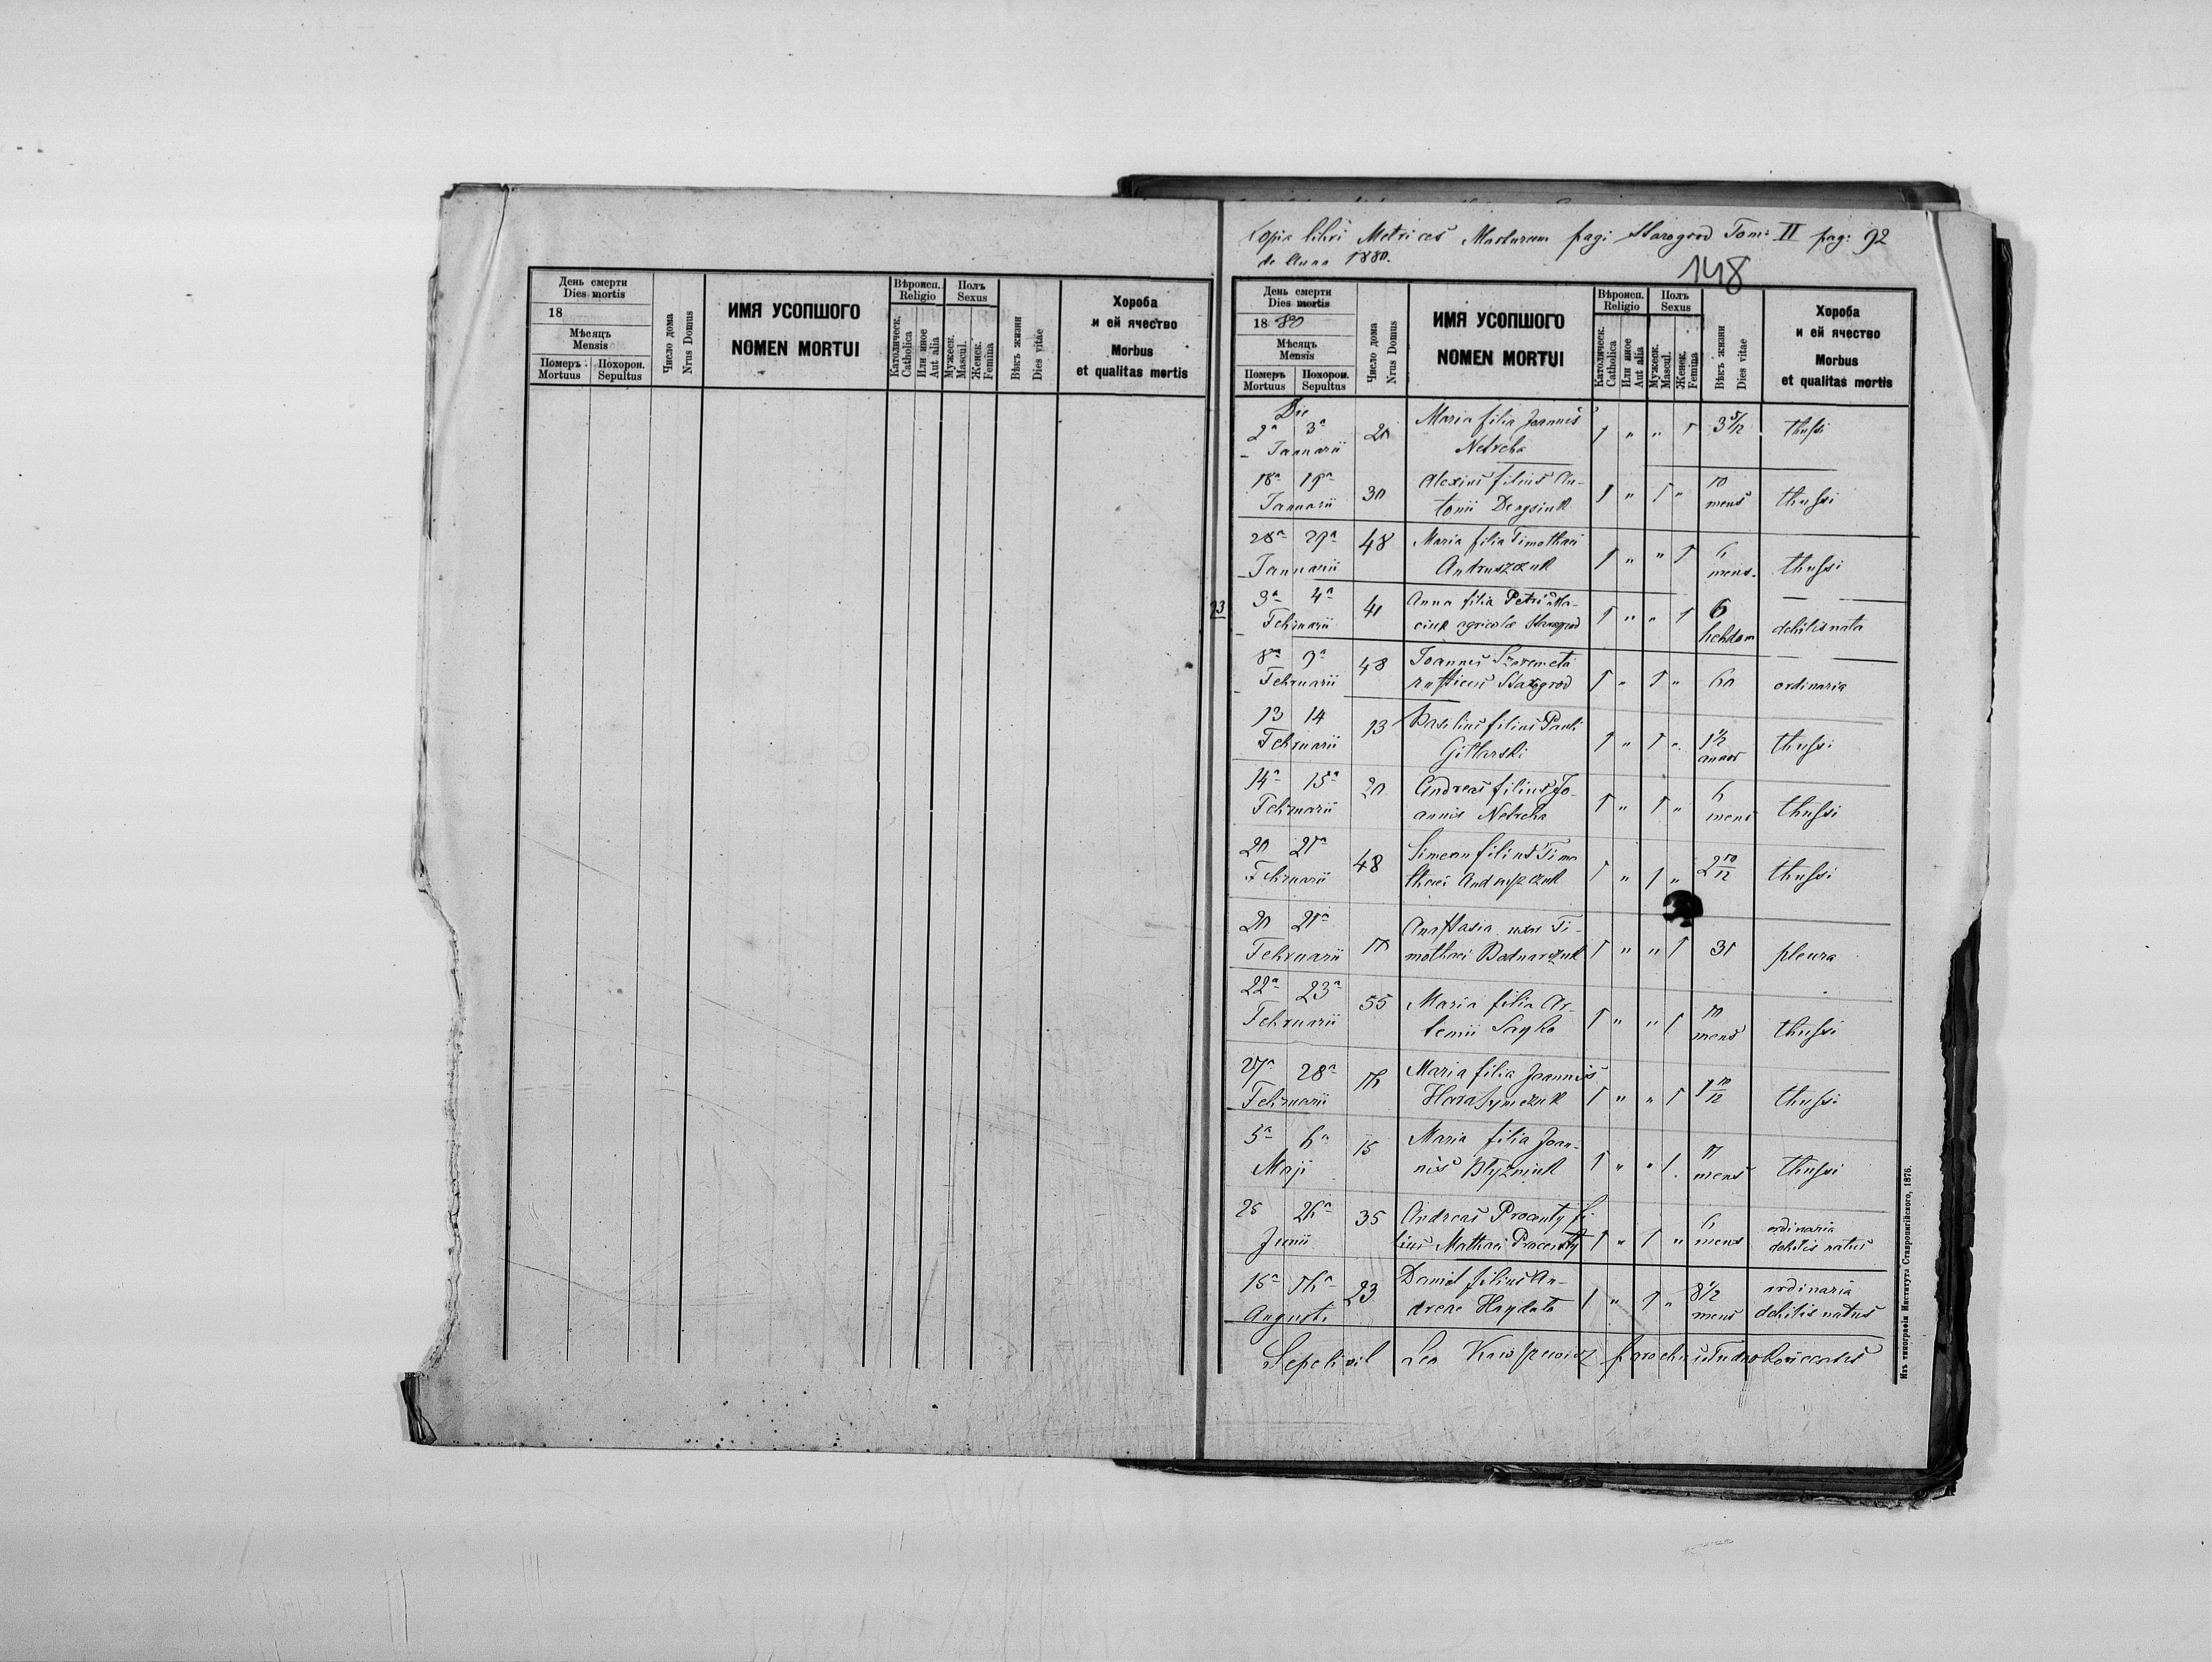 День смерти
Dies mortis
18
Мѣсяцъ
Mensis
Померъ Mortuus
Похорон. Sepultus
Число дома
Nrus Domus
ИМЯ УСОПШОГО
NOMEN MORTUI
Вѣроисп.
Religio
Католическ.
Catholica
Или иное
Aut alia
Полъ
Sexus
Мужеск.
Mascul.
Женск.
Femina
Вѣкъ жизни
Dies vitae
Хороба
и ей ячество
Morbus
et qualitas mortis
Copia libri Metrices Mortuorum pagi Starogrod Tom: II pag: 92
de Anno 1880.
148
День смерти
Dies mortis
18 80
Мѣсяцъ
Mensis
Померъ Mortuus
Похорон. Sepultus
Число дома
Nrus Domus
ИМЯ УСОПШОГО
NOMEN MORTUI
Вѣроисп.
Religio
Католическ.
Catholica
Или иное
Aut alia
Полъ
Sexus
Мужеск.
Mascul.
Женск.
Femina
Вѣкъ жизни
Dies vitae
Хороба
и ей ячество
Morbus
et qualitas mortis
Die
2a 3a 20 Maria filia Joannis 1 " " 1 3 5/12 thussi
Januarii Netreba
18a 19a 30 Alexius filius An-
Januarii tonii 1 " 1 " 10 mens thussi
28a 29a 48 Maria filia Timothaei
Januarii Andruszczuk 1 " " 1 6 mens. thussi
23
3a 4a 41 Anna filia Petri
Februarii agricolae Starogrod 1 " " 1 6 hebdom debilis nata
8a 9a 48 Joannes Szeremeta
Februarii rusticus Starogrod 1 " 1 " 60 ordinaria
13 14 13 Basilius filius Pauli
Februarii Gittarski 1 " 1 " 1 1/2 annor thussi
14a 15a 20 Andreas filius Jo-
Februarii annis Netreba 1 " 1 " 6 mens thussi
20 21a 48 Simeon filius Timo
Februarii thaei Andruszczuk 1 " 1 " 2 10/12 thussi
20 21a 10 Anastasia uxor Ti-
Februarii mothaei Bodnarczuk 1 " " 1 31 pleura
22a 23a 55 Maria filia Ar-
Februarii temii Sayko 1 " " 1 10 mens thussi
27a 28a 16 Maria filia Joannis
Februarii Harasymczuk 1 " " 1 1 10/12 thussi
5a 6a 15 Maria filia Joan-
Maji nis Błyzniuk 1 " " 1 11 mens thussi
25 26a 35 Andreas Procenty fi
Junii lius Mathaei Procenty 1 " 1 " 6 mens ordinaria debilis natus
15a 16a 23 Daniel filius An-
Augusti dreae Haydata 1 " 1 " 8 1/2 mens ordinaria debilis natus
Sepelivit Leo parochus
Изъ типографіи Института Ставропигійского, 1876.